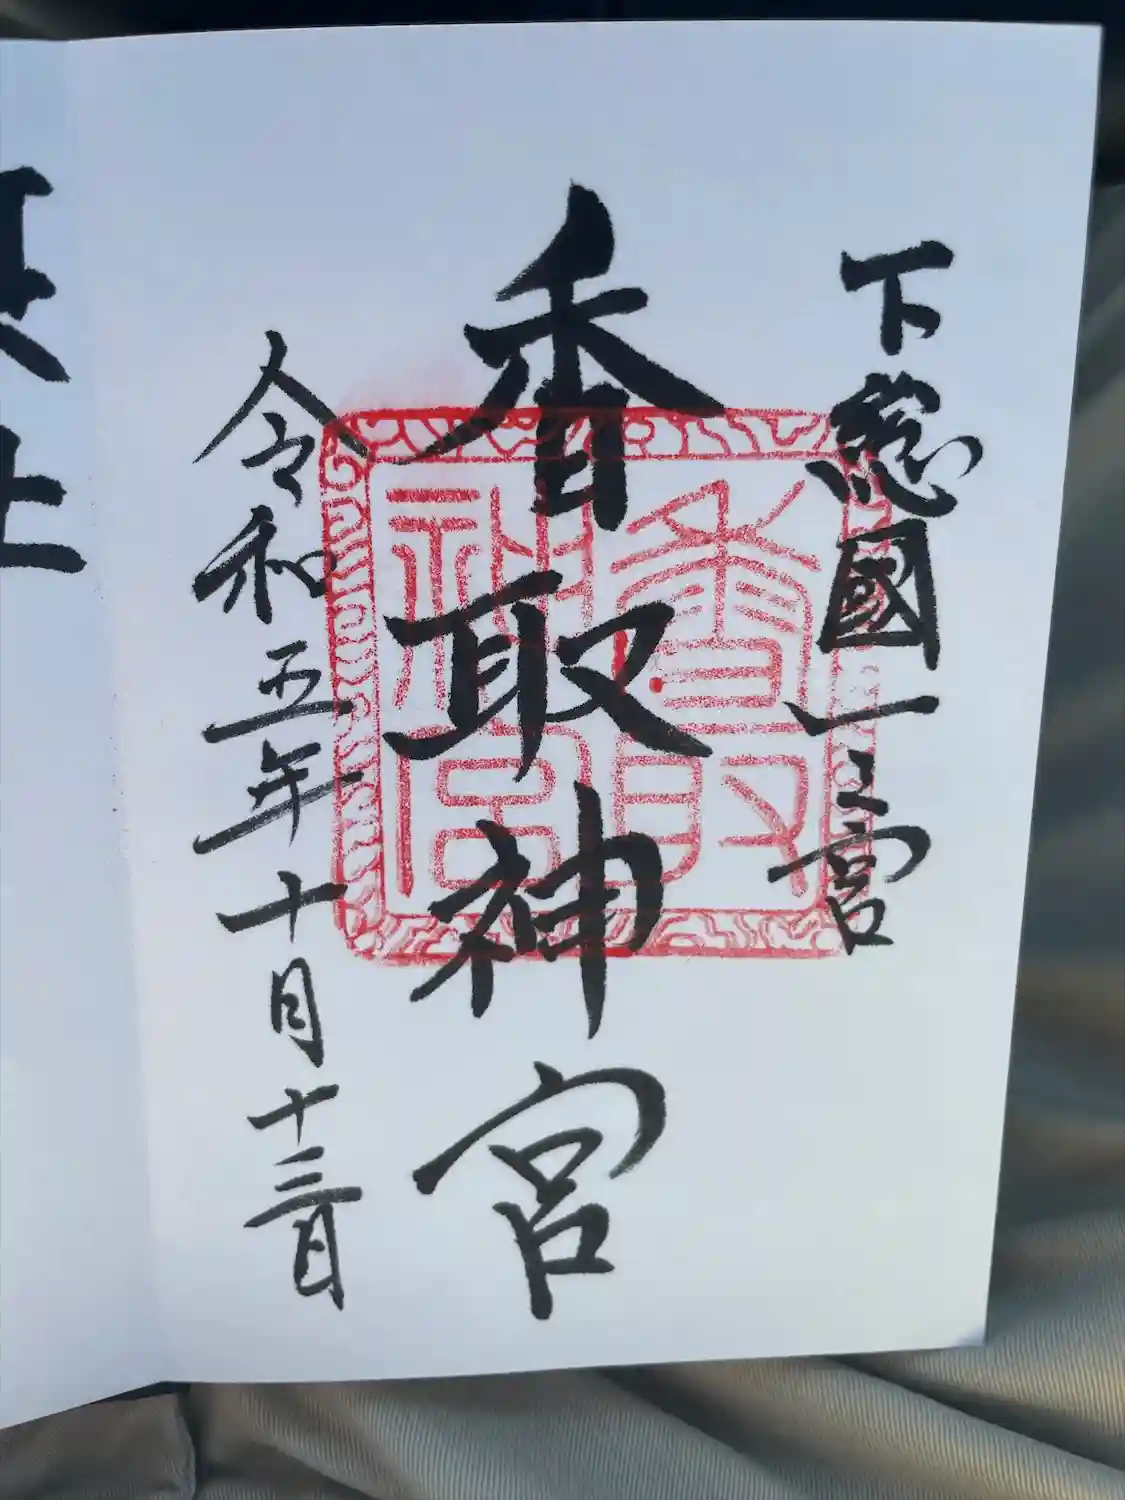 下総國一之宮
香取神宮
令和五年十月十三日
香取神宮